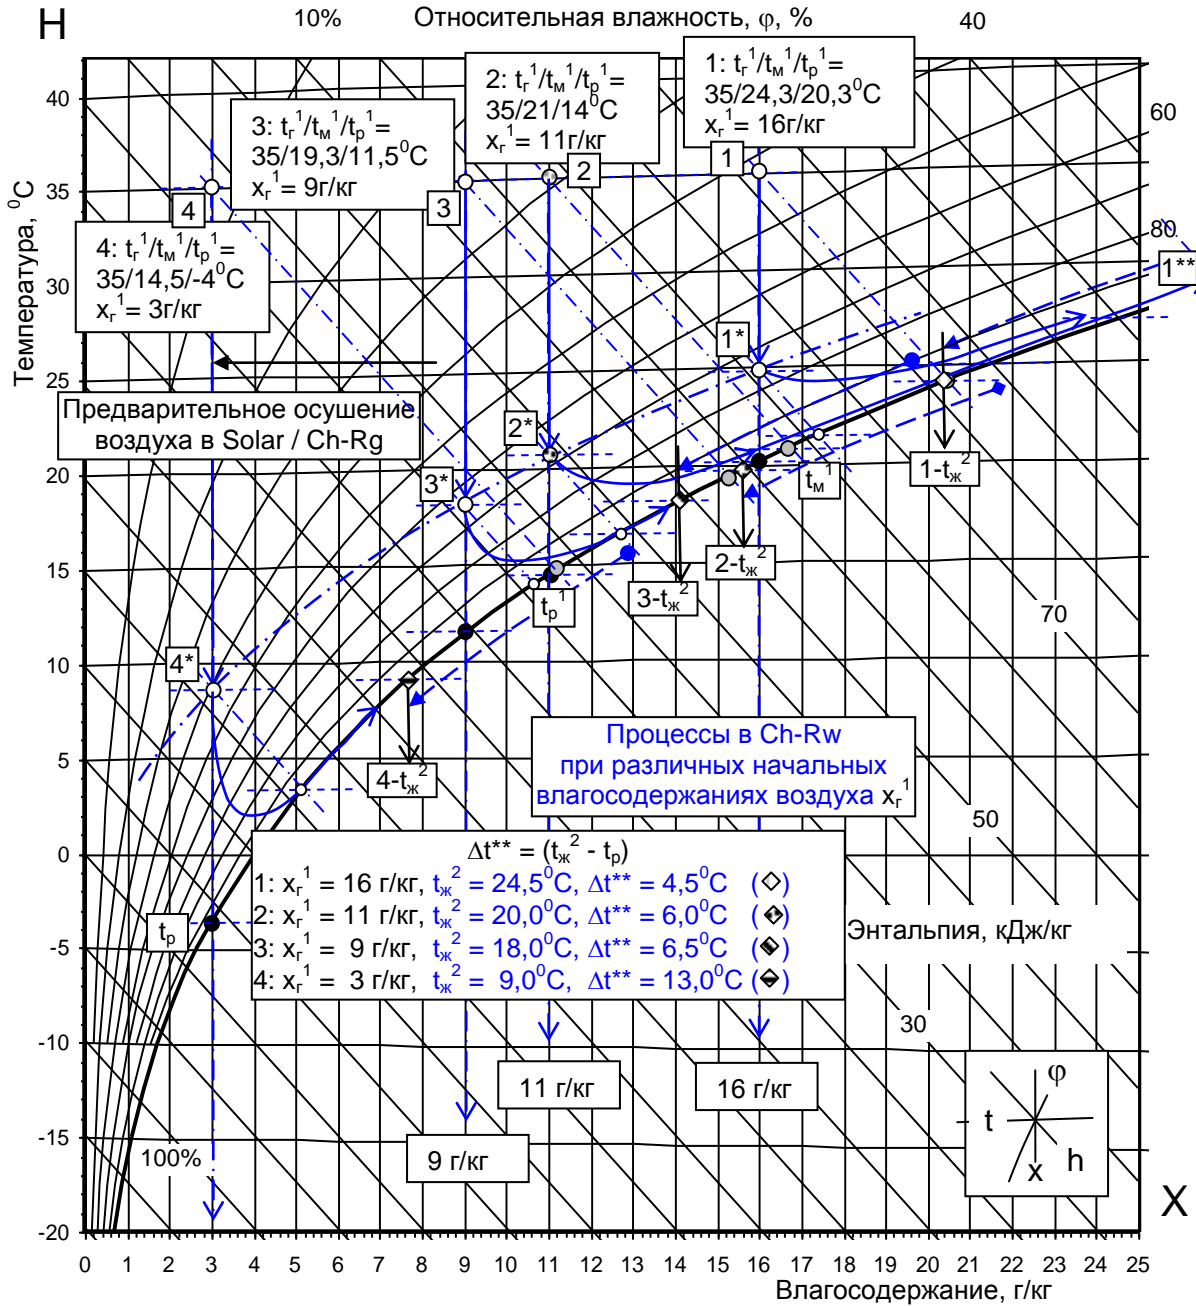 H
10%
Относительная влажность, φ, %
40
40
35
30
25
20
15
10
5
0
-5
-10
-15
-20
Температура, ⁰C
1: tг¹/tм¹/tр¹=
35/24,3/20,3⁰C
xг¹= 16г/кг
2: tг¹/tм¹/tр¹=
35/21/14⁰C
xг¹= 11г/кг
3: tг¹/tм¹/tр¹=
35/19,3/11,5⁰C
xг¹= 9г/кг
4: tг¹/tм¹/tр¹=
35/14,5/-4⁰C
xг¹= 3г/кг
1
2
3
4
60
80
1**
1*
2*
3*
4*
Предварительное осушение
воздуха в Solar / Ch-Rg
tм¹
tр¹
1-tж²
2-tж²
3-tж²
4-tж²
70
50
30
Процессы в Ch-Rw
при различных начальных
влагосодержаниях воздуха xг¹
Δt** = (tж² - tр)
1: xг¹ = 16 г/кг, tж² = 24,5⁰C, Δt** = 4,5⁰C ( )
2: xг¹ = 11 г/кг, tж² = 20,0⁰C, Δt** = 6,0⁰C ( )
3: xг¹ = 9 г/кг, tж² = 18,0⁰C, Δt** = 6,5⁰C ( )
4: xг¹ = 3 г/кг, tж² = 9,0⁰C, Δt** = 13,0⁰C ( )
tр
Энтальпия, кДж/кг
11 г/кг
16 г/кг
9 г/кг
100%
φ
t
h
x
X
0 1 2 3 4 5 6 7 8 9 10 11 12 13 14 15 16 17 18 19 20 21 22 23 24 25
Влагосодержание, г/кг